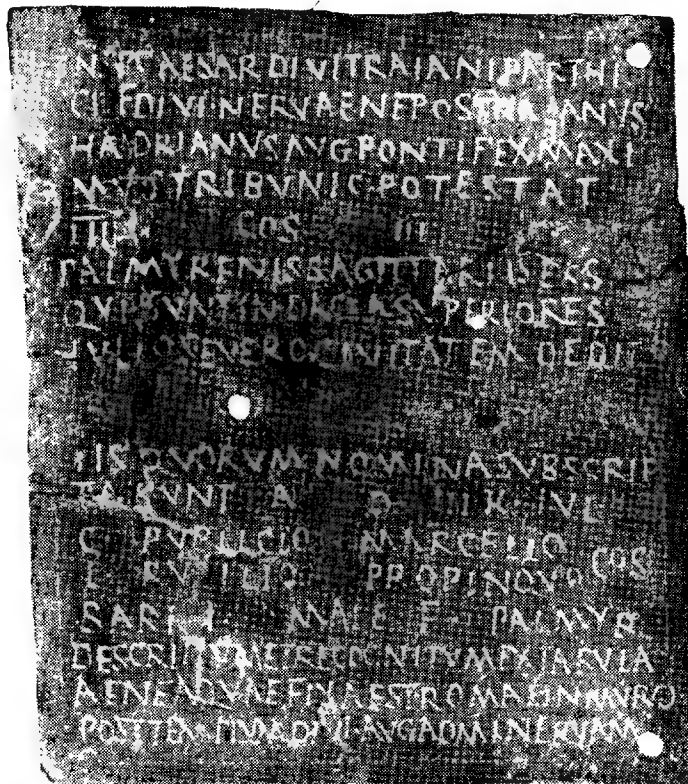 CAESAR DIVI TRAIANI PARTHI
CI F DIVI NERVAE NEPOS TRAIANVS
HADRIANVS AVG PONTIFEX MAXI
MVS TRIBVNIC POTESTAT
COS III
PALMYRENIS SAGITTARIIS
QVI SVNT IN DACIA SVPERIORE S
IVLIO SEVERO CIVITATEM DEDIT
IIS QVORVM NOMINA SVBSCRIP
TA SVNT A D III K IVL
C PVBLICIO MARCELLO COS
L RVTILIO PROPINQVO
MALE F PALMYR
DESCRIPTVM ET RECOGNITVM EX TABVLA
AENEA QVAE FIXA EST ROMAE IN MVRO
POST TEMPLVM DIVI AVG AD MINERVAM